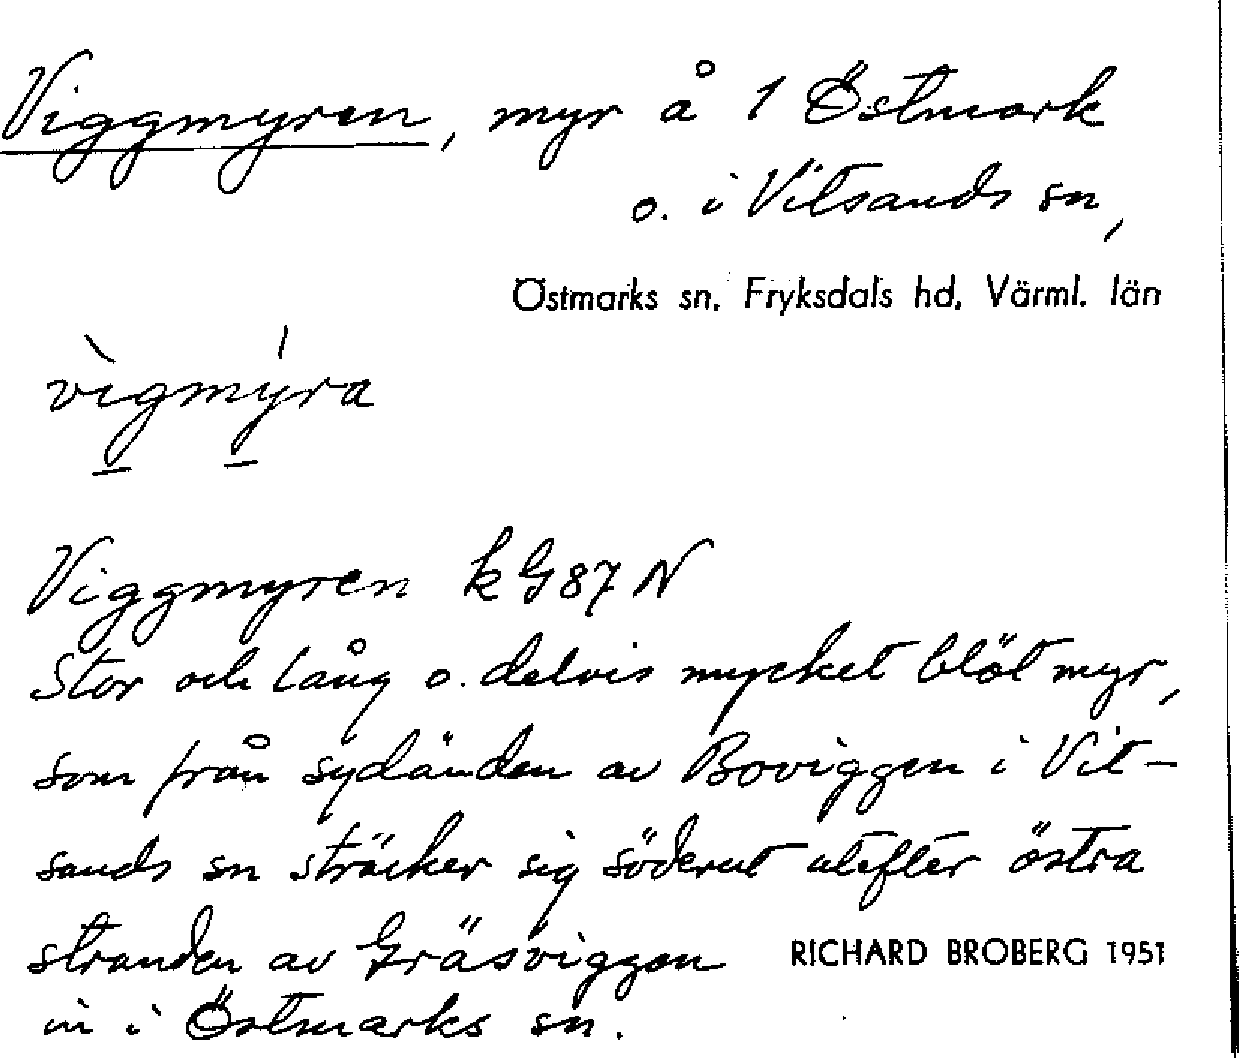 Viggmyren, myr å 1 Östmark
o. i Vitsands sn,
Östmarks sn, Fryksdals hd, Värml. län
vìgmýra
Viggmyren k G87 N
Stor och lång o. delvis mycket blöt myr,
som från sydänden av Boviggen i Vit-
sands sn sträcker sig söderut utefter östra
stranden av Gräsviggen
in i Östmarks sn.
RICHARD BROBERG 1951